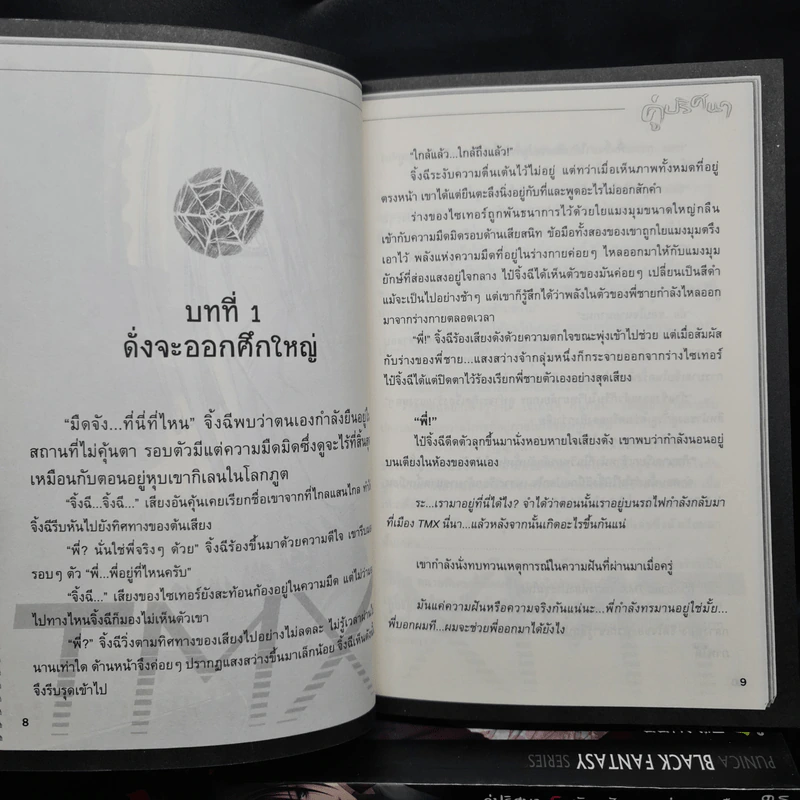 บทที่ 1
ดั่งจะออกศึกใหญ่
“มืดจัง...ที่นี่ที่ไหน” จิ้งฉีพบว่าตนเองกำลังยืนอยู่
สถานที่ไม่คุ้นตา รอบตัวมีแต่ความมืดมิดซึ่งดูจะไร้ที่สิ้นสุด
เหมือนกับตอนอยู่หุบเขากิเลนในโลกภูต
“จิ้งฉี...จิ้งฉี...” เสียงอันคุ้นเคยเรียกชื่อเขาจากที่ไกลแสนไกล
จิ้งฉีรีบหันไปยังทิศทางของต้นเสียง
“พี่? นั่นใช่พี่จริงๆ ด้วย” จิ้งฉีร้องขึ้นมาด้วยความดีใจ
รอบๆ ตัว “พี่...พี่อยู่ที่ไหนครับ”
“จิ้งฉี...” เสียงของไซเทอร์ยังสะท้อนก้องอยู่ในความมืด
ไปทางไหนจิ้งฉีก็มองไม่เห็นตัวเขา
“พี่?” จิ้งฉีวิ่งตามทิศทางของเสียงไปอย่างไม่ลดละ ไม่รู้เวลา
นานเท่าใด ด้านหน้าจึงค่อยๆ ปรากฏแสงสว่างขึ้นมาเล็กน้อย จิ้งฉี
จึงรีบรุดเข้าไป
TMX
8
คู่ปริศนา
“ใกล้แล้ว...ใกล้ถึงแล้ว!”
จิ้งฉีระงับความตื่นเต้นไว้ไม่อยู่ แต่ทว่าเมื่อเห็นภาพทั้งหมดที่อยู่
ตรงหน้า เขาได้แต่ยืนตะลึงนิ่งอยู่กับที่และพูดอะไรไม่ออกสักคำ
ร่างของไซเทอร์ถูกพันธนาการไว้ด้วยใยแมงมุมขนาดใหญ่กลืน
เข้ากับความมืดมิดรอบด้านเสียสนิท ข้อมือทั้งสองของเขาถูกใยแมงมุมตรึง
เอาไว้ พลังแห่งความมืดที่อยู่ในร่างกายค่อยๆ ไหลออกมาให้กับแมงมุม
ยักษ์ที่ส่องแสงอยู่ใจกลาง ไป๋จิ้งฉีได้เห็นตัวของมันค่อยๆ เปลี่ยนเป็นสีดำ
แม้จะเป็นไปอย่างช้าๆ แต่เขาก็รู้สึกได้ว่าพลังในตัวของพี่ชายกำลังไหลออก
มาจากร่างกายตลอดเวลา
“พี่!” จิ้งฉีร้องเสียงดังด้วยความตกใจขณะพุ่งเข้าไปช่วย แต่เมื่อสัมผัส
กับร่างของพี่ชาย...แสงสว่างจ้ากลุ่มหนึ่งก็กระจายออกจากร่างไซเทอร์
ไป๋จิ้งฉีได้แต่ปิดตาไว้ร้องเรียกพี่ชายตัวเองอย่างสุดเสียง
“พี่!”
ไป๋จิ้งฉีดีดตัวลุกขึ้นมานั่งหอบหายใจเสียงดัง เขาพบว่ากำลังนอนอยู่
บนเตียงในห้องของตนเอง
ระ...เรามาอยู่ที่นี่ได้ไง? จำได้ว่าตอนนั้นเราอยู่บนรถไฟกำลังกลับมา
ที่เมือง TMX นี่นา...แล้วหลังจากนั้นเกิดอะไรขึ้นกันแน่
เขากำลังนั่งทบทวนเหตุการณ์ในความฝันที่ผ่านมาเมื่อครู่
มันแค่ความฝันหรือความจริงกันแน่นะ...พี่กำลังทรมานอยู่ใช่มั้ย...
พี่บอกผมที...ผมจะช่วยพี่ออกมาได้ยังไง
9
PUNICA BLACK FANTASY SERIES